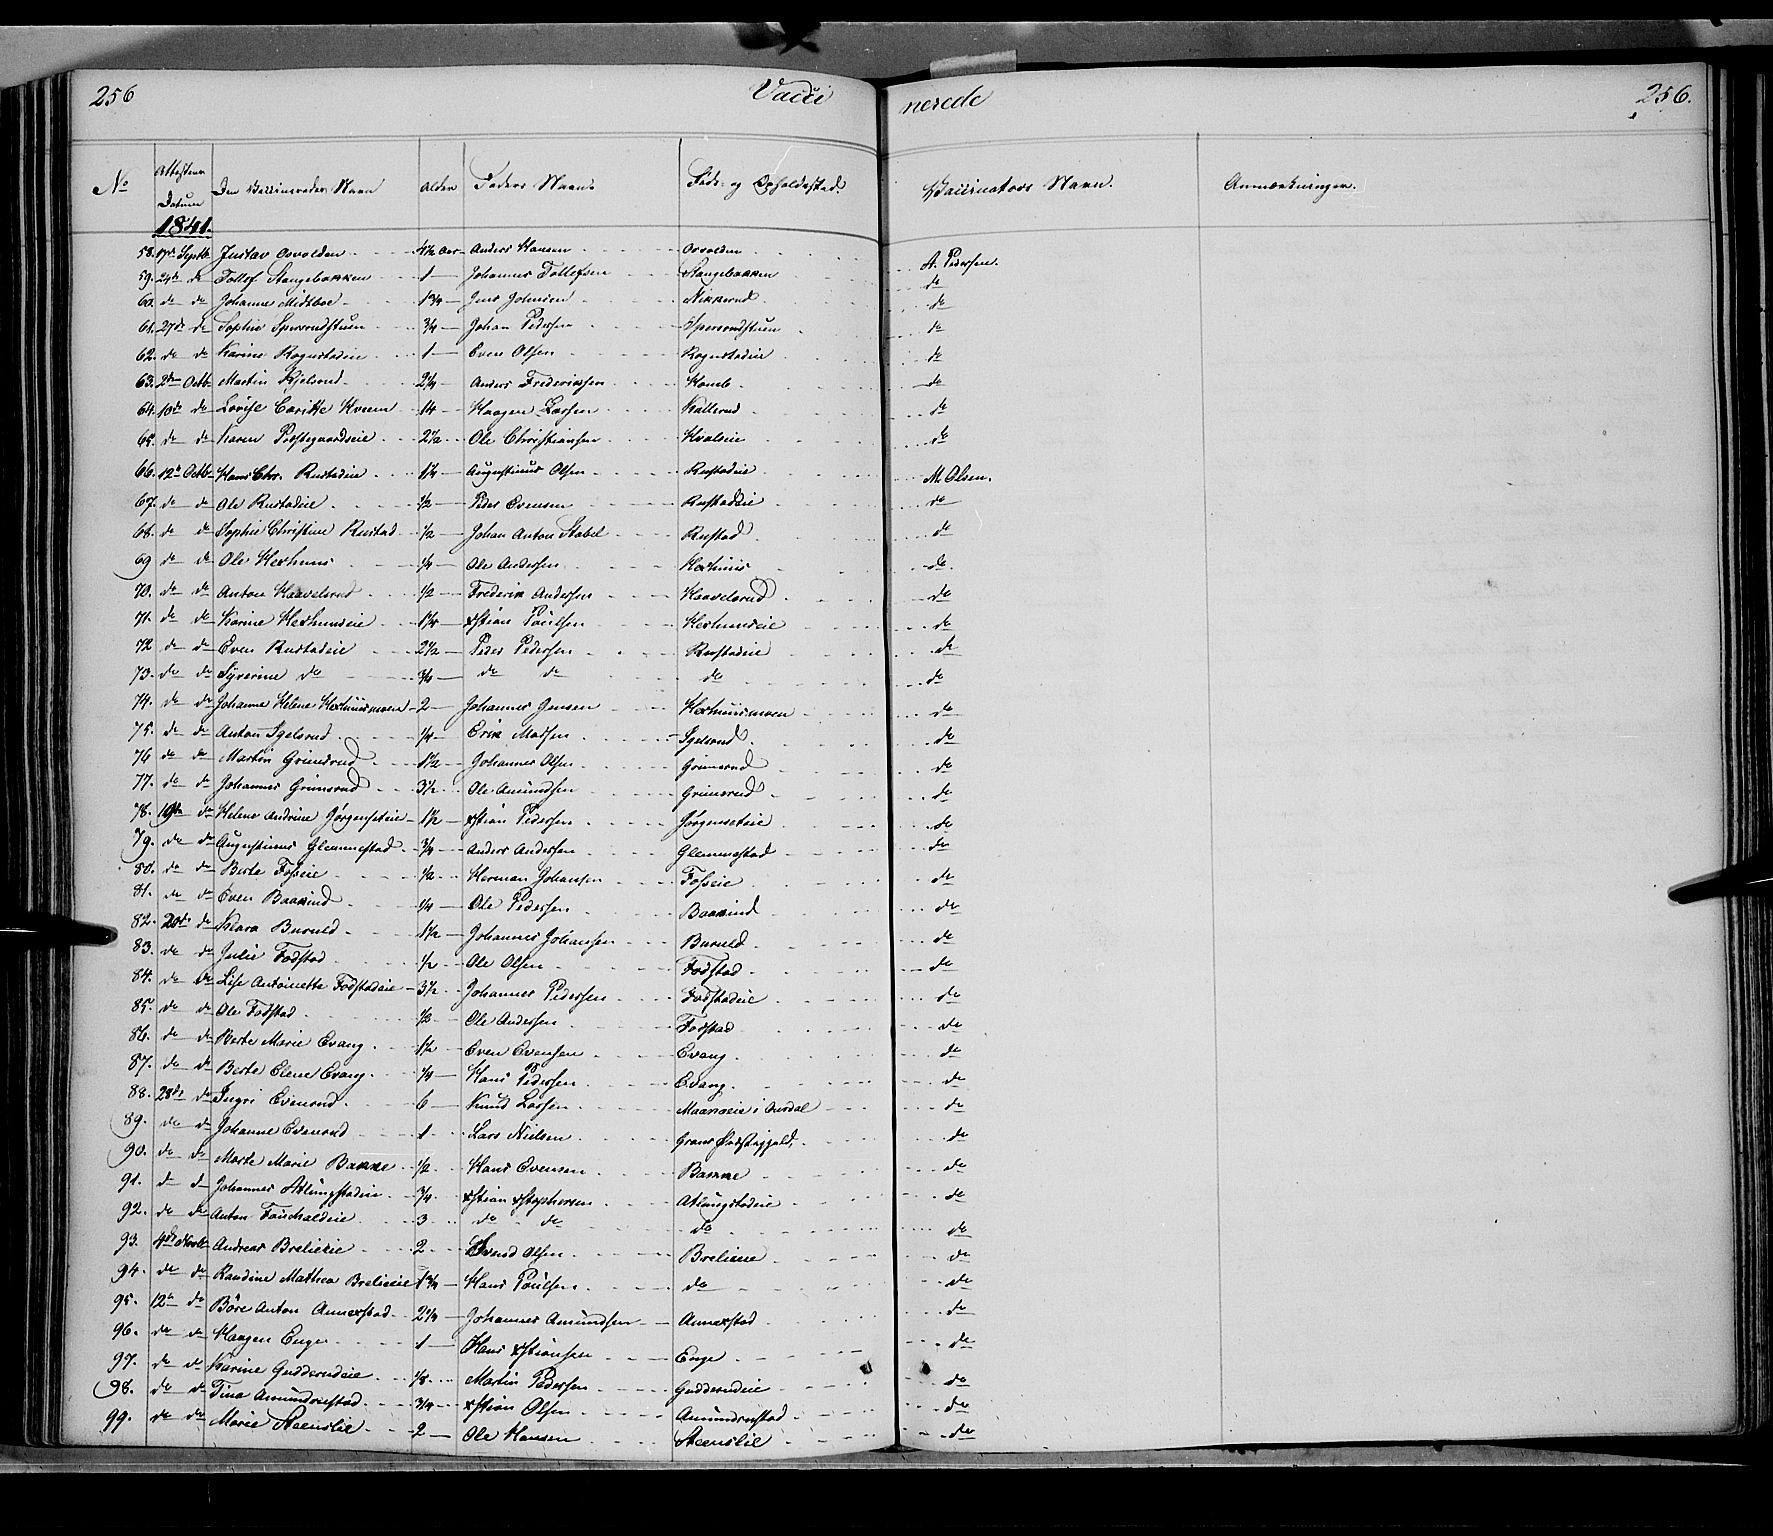 256 Vacci nerede 256.
No Attestens Datum Den Vaccineredes Navn Alder Faders Navn Føde- og Opholdsstad. Vaccinateurs Navn. Anmærkninger.
1841.
58. 17de Septb. Gustav Osvolden 4½ Aar Anders Hansen Osvolden A. Pedersen.
59. 24de do Tollef Stangebakken 1 Johannes Tollefsen Stangebakken do
60. do do Johanne Midtboe 1¾ Jens Johnsen Nikkerud do
61. 27de do Sophie Spersrudstuen ¾ Johan Pedersen Spersrudstuen do
62. do do Karine Rognstadeie 1 Even Olsen Rognstadeie do
63. 2den Octb. Martin Kjelsrud 2¼ Anders Frederiksen Komb do
64. 10de do Lovise Caritte Hveem 14 Haagen Larsen Kallerud do
65. do do Karen Præstegaardseie 2½ Ole Christiansen Hvalseie do
66. 12te Octb. Hans Chr. Rustadeie 1¼ Augustinus Olsen Rustadeie M. Olsen.
67. do do Ole Rustadeie ½ Peder Evensen Rustadeie do
68. do do Sophie Christine Rustad ½ Johan Anton Stabel Rustad do
69 do do Ole Hexhuus ¼ Ole Andersen Hexhuus do.
70. do do Anton Haavelsrud ½ Frederik Andersen Haavelsrud do
71. do do Karine Hexhuuseie 1¼ Xstian Poulsen Hexhuuseie do
72 do do Even Rustadeie 2½ Peder Pedersen Rustadeie do
73. do do Syverine do ¾ do do do do
74. do do Johanne Helene Hexhuusmoen 2 Johannes Jensen Hexhuusmoen do
75. do do Anton Igelsrud ¼ Erik Madsen Igelsrud do
76 do do Martin Grimsrud 1½ Johannes Olsen Grimsrud do
77. do do Johannes Grimsrud 3½ Ole Amundsen Grimsrud do
78. 19de do Helene Andrine Jørgenseteie 1½ Xstian Pedersen Jørgenseteie do
79. do do Augustinus Glemmestad ¾ Anders Andersen Glemmestad do
80. do do Berte Fosseie ½ Herman Johansen Fosseie do
81. do do Even Baakind ¼ Ole Pedersen Baakind do
82. 20de do Klara Buruld 1½ Johannes Johansen Buruld do
83. do do Julie Fodstad ½ Ole Olsen Fodstad do
84. do do Lise Antoinette Fodstadeie 3½ Johannes Pedersen Fodstadeie do
85. do do Ole Fodstad ½ Ole Andersen Fodstad do
86. do do Berte Marie Evang 1½ Even Evensen Evang do
87. do do Berte Elene Evang. ¼ Hans Pedersen Evang. do
88. 28de do Ingri Evensrud 6 Knud Larsen i Aurdal do
89. do do Johanne Evensrud 1 Lars Nielsen Grans Præstegjeld. do
90. do do Marte Marie Bakke ½ Hans Evensen Bakke do
91. do do Johannes Atlungstadeie ¾ Xstian Xstophersen Atlungstadeie do
92. do do Anton Fauchaldeie 3 do do do do
93. 4de Novbr Andreas Brelieeie 2 Svend Olsen Brelieeie do
94. do do Randine Mathea Brelieeie 1¾ Hans Poulsen do do
95. 12te do Børe Anton Annexstad 2¼ Johannes Amundsen Annexstad do
96. do do Haagen Enge 1 Hans Xstiansen Enge do
97. do do Karine Gudderudeie ⅛ Martin Pedersen Gudderudeie do
98. do do Tina Amundrustad ¾ Xstian Olsen Amundrustad do
99. do do Marie Steenslie 2 Ole Hansen Steenslie do